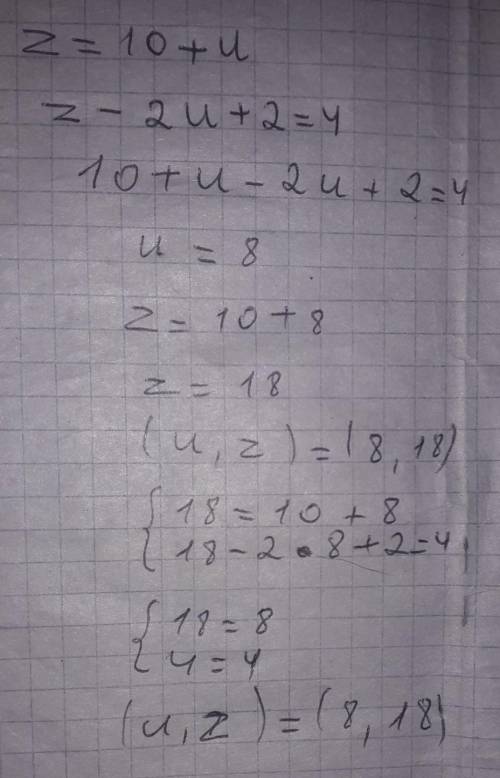 z = 10 + u
z - 2u + 2 = 4
10 + u - 2u + 2 = 4
u = 8
z = 10 + 8
z = 18
(u, z) = (8, 18)
{ 18 = 10 + 8
{ 18 - 2 • 8 + 2 = 4
{ 18 = 8
{ 4 = 4
(u, z) = (8, 18)